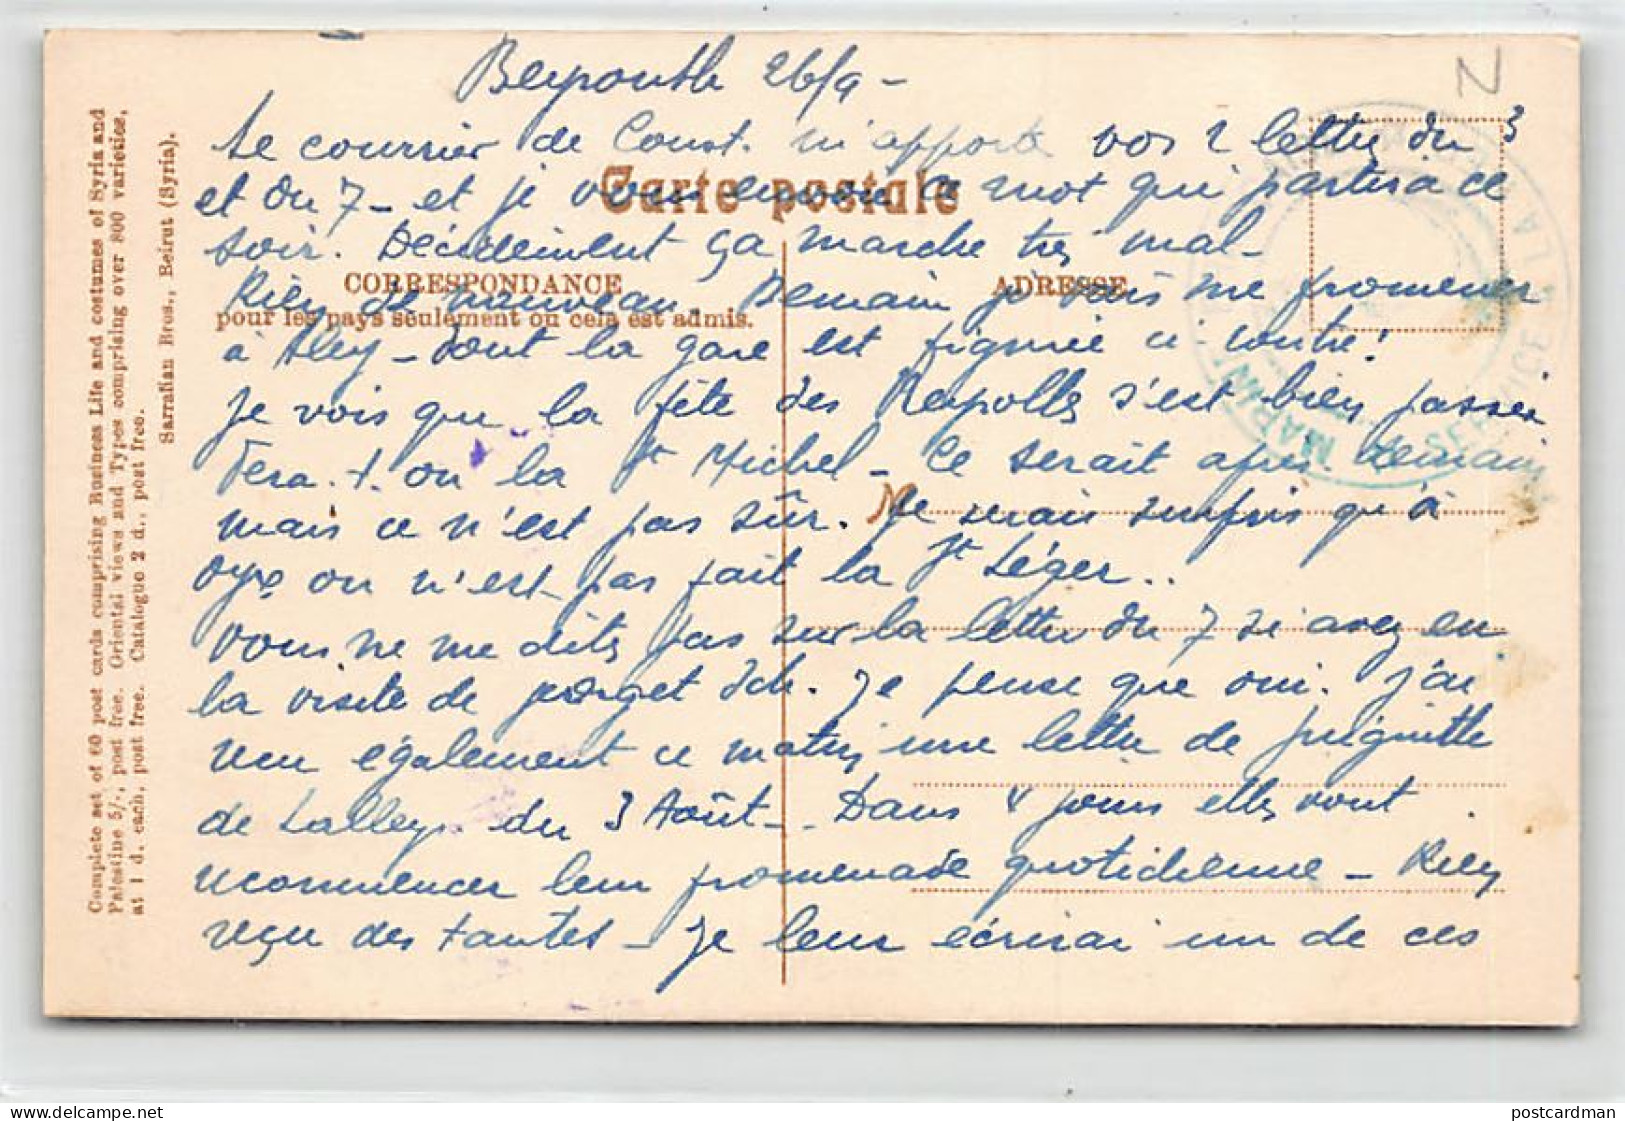 Beyrouth 26/9 -
Le courrier de Const. m'apporte vos 2 lettres du 3
et du 7 - et je vous envoie ce mot qui partira ce
soir. Décidément ça marche très mal -
Rien de nouveau. Demain je vais me promener
à Aley - dont la gare est figurée ci contre!
Je vois que la fête des s'est bien passée
fera. t. on la St Michel - Ce serait après. demain
mais ce n'est pas sûr. Je serais surpris qu'à
on n'est pas fait la St Léger..
Vous ne me dites pas sur la lettre du 7 si avez eu
la visite de Je pense que oui. J'ai
reçu également ce matin une lettre de
de du 3 Août - Dans 4 jours elles vont
recommencer leur promenade quotidienne - Rien
reçu des tantes - Je leur écrirai un de ces
Carte postale
CORRESPONDANCE
pour les pays seulement ou cela est admis.
ADRESSE
Complete set of 60 post cards comprising Business Life and costumes of Syria and
Palestine 5/-, post free. Oriental views and Types comprising over 800 varieties,
at 1 d. each, post free. Catalogue 2 d., post free.
Sarrafian Bros., Beirut (Syria).
SERVICE A LA MER
MARINE
N
delcampe.net
postcardman